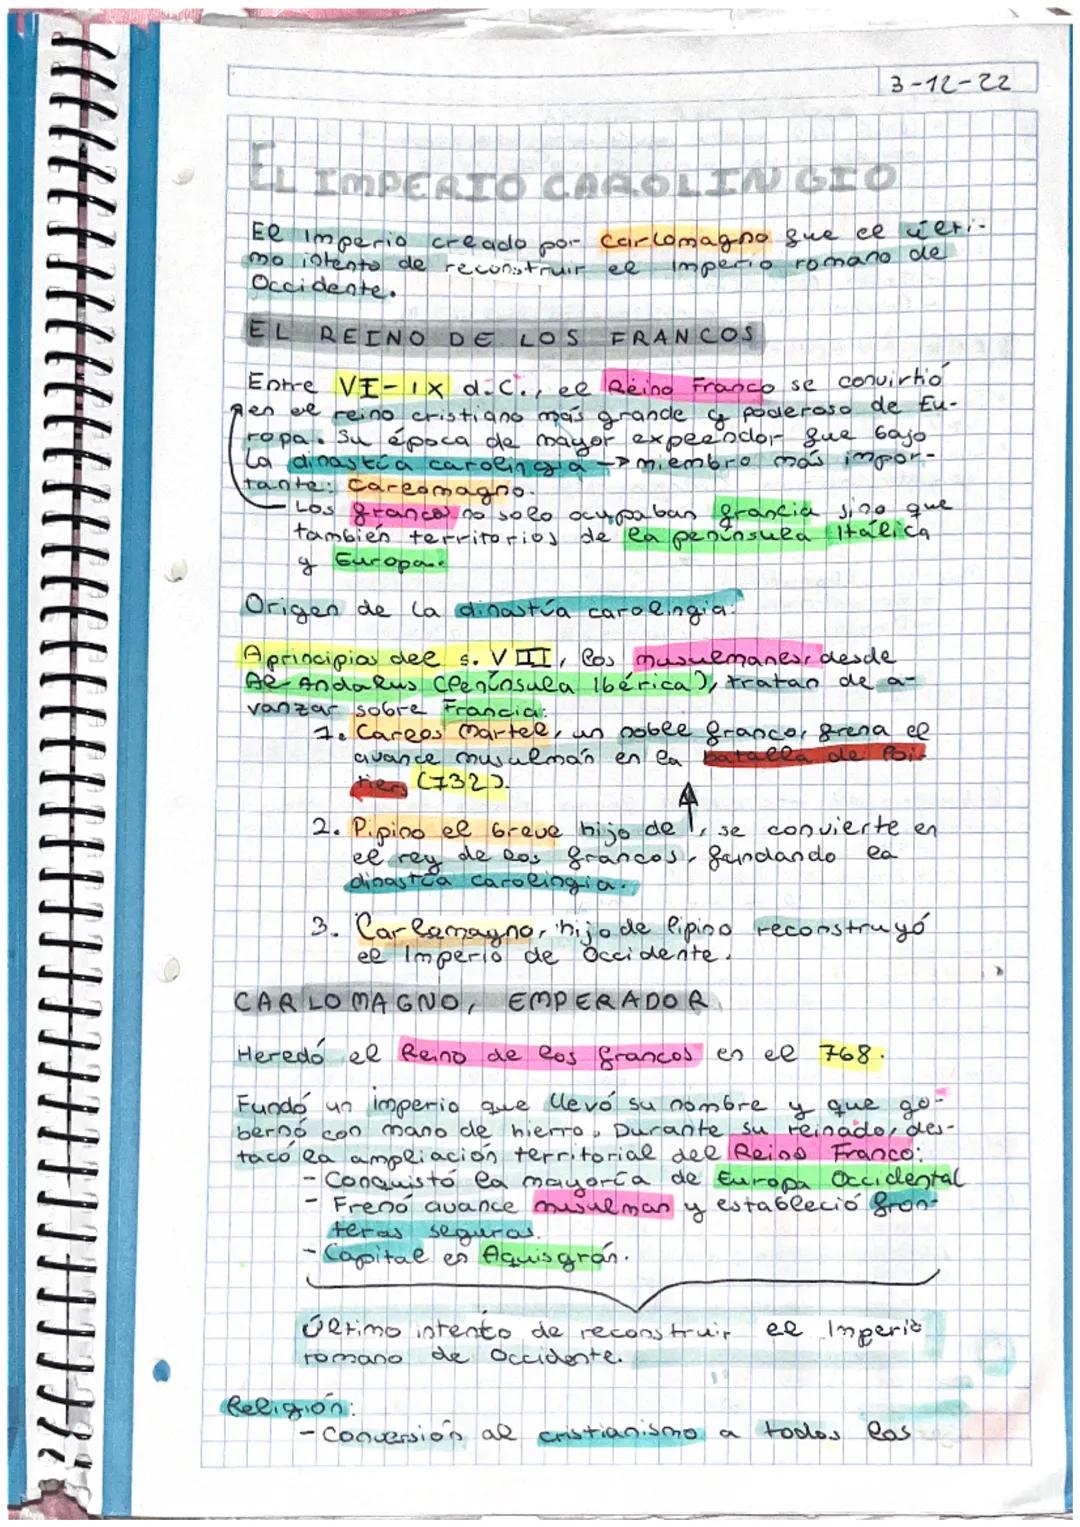 3-12-22
EL IMPERIO CAROLINGIO
El Imperio creado por Carlomagno fue el últi-
mo intento de reconstruir el Imperio romano de
Occidente.
EL REINO DE LOS FRANCOS
Entre VI-IX d.C., el Reino Franco se convirtió
en el reino cristiano más grande y poderoso de Eu-
ropa. Su época de mayor explendor fue bajo
la dinastía carolingia → miembro más impor-
tante: Carlomagno.
Los francos no solo ocupaban francia sino que
también territorios de la península Itálica
y Europa.
Origen de la dinastía carolingia:
A principios del s. VIII, los musulmanes, desde
Al-Andalus (Península Ibérica), tratan de a-
vanzar sobre Francia:
1. Carlos Martel, un noble franco, frena el
avance musulmán en la batalla de Poi-
tiers (732).
2. Pipino el breve hijo de ↑, se convierte en
el rey de los francos, fundando la
dinastía carolingia.
3. Carlomagno, hijo de Pipino reconstruyó
el Imperio de Occidente.
CARLOMAGNO, EMPERADOR
Heredó el Reino de los francos en el 768.
Fundó un imperio que llevó su nombre y que go-
bernó con mano de hierro. Durante su reinado, des-
tacó la ampliación territorial del Reino Franco:
- Conquistó la mayoría de Europa Occidental
- Frenó avance musulman y estableció fron-
teras seguras.
- Capital en Aquisgrán.
Último intento de reconstruir el Imperio
romano de Occidente.
Religión:
- Conversión al cristianismo a todos los